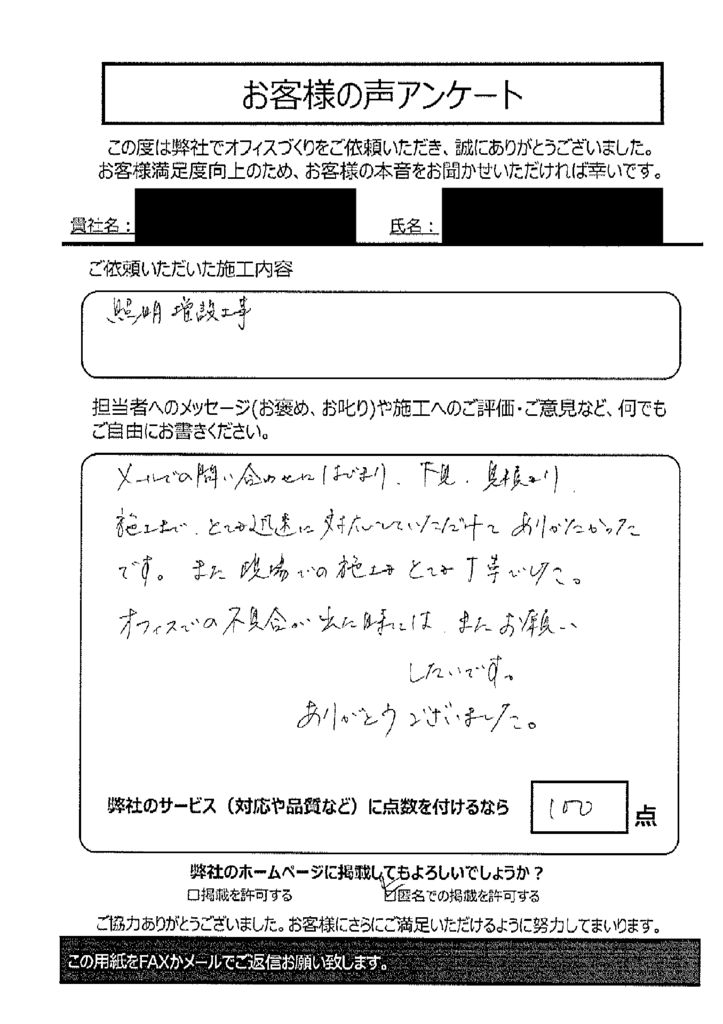 お客様の声アンケート
この度は弊社でオフィスづくりをご依頼いただき、誠にありがとうございました。
お客様満足度向上のため、お客様の本音をお聞かせいただければ幸いです。
貴社名：
氏名：
ご依頼いただいた施工内容
照明増設工事
担当者へのメッセージ(お褒め、お叱り)や施工へのご評価・ご意見など、何でも
ご自由にお書きください。
メールでの問い合わせにはじまり、下見、見積もり、
施工まで、とても迅速に対応していただけてありがたかった
です。また現場での施工もとても丁寧でした。
オフィスでの不具合が出た時には、またお願い
したいです。
ありがとうございました。
弊社のサービス（対応や品質など）に点数を付けるなら
100
点
弊社のホームページに掲載してもよろしいでしょうか？
□掲載を許可する
☑匿名での掲載を許可する
ご協力ありがとうございました。お客様にさらにご満足いただけるように努力してまいります。
この用紙をFAXかメールでご返信お願い致します。